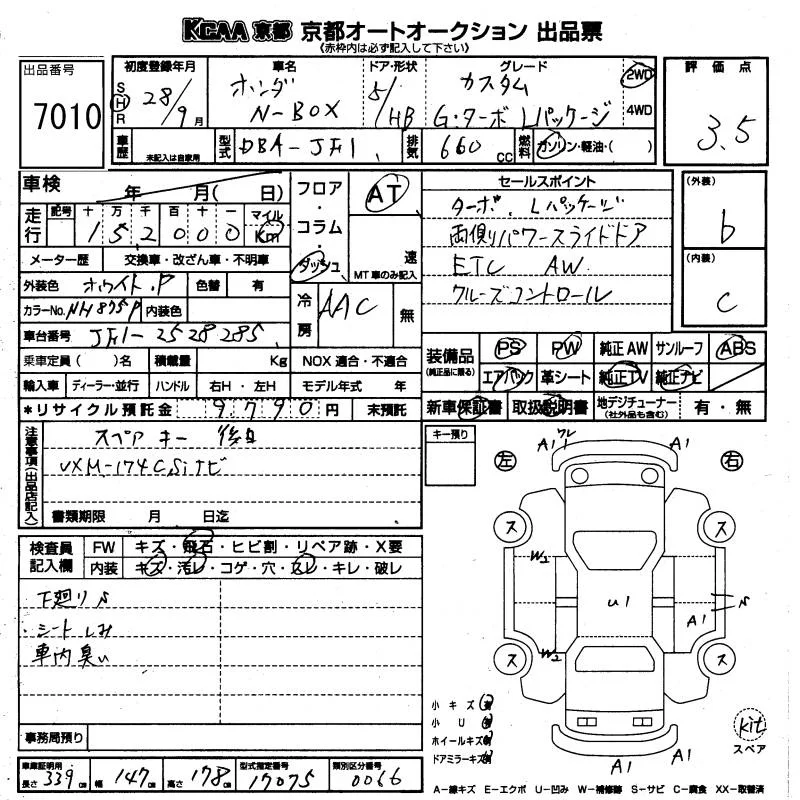 KCAA 京都 京都オートオークション 出品票
《赤枠内は必ず記入して下さい》
出品番号 7010
初度登録年月 S H R 28/9月
車名 ホンダ N-BOX
ドア・形状 5/HB
グレード カスタム G・ターボ Lパッケージ
2WD 4WD
評価点 3.5
車歴 未記入は自家用
型式 DBA-JF1
排気 660cc
燃料 ガソリン・軽油・( )
車検 年 月( 日)
走行 記号 十 万 千 百 十 一 マイル Km
152000
メーター歴 交換車・改ざん車・不明車
外装色 ホワイト.P 色替 有
カラーNo. NH875P 内装色
車台番号 JF1-2528285
乗車定員( )名 積載量 Kg NOX 適合・不適合
輸入車 ディーラー・並行 ハンドル 右H・左H モデル年式 年
*リサイクル預託金 9790円 未預託
フロア・コラム・ダッシュ
AT
速
MT車のみ記入
冷房 AAC 無
セールスポイント
ターボ. Lパッケージ
両側パワースライドドア
ETC AW
クルーズコントロール
(外装) b
(内装) c
装備品 (純正品に限る)
PS PW 純正AW サンルーフ ABS
エアバック 革シート 純正TV 純正ナビ
新車保証書 取扱説明書 地デジチューナー (社外品も含む) 有・無
注意事項(出品店記入)
スペアキー 後日
VXM-174CSiナビ
書類期限 月 日迄
キー預り
検査員記入欄
FW キズ・飛石・ヒビ割・リペア跡・X要
内装 キズ・汚レ・コゲ・穴・スレ・キレ・破レ
下廻りS
・シートしみ
車内臭い
事務局預り
左 右
A1 ワレ A1
ス ス
W2
U1
A1 S
W2
ス ス
A1 A1
小キズ 有
小U 有
ホイールキズ 有
ドアミラーキズ 有
kit
スペア
車庫証明用 長さ 339cm 幅 147cm 高さ 178cm
型式指定番号 17075
類別区分番号 0066
A－線キズ E－エクボ U－凹み W－補修跡 S－サビ C－腐食 XX－取替済